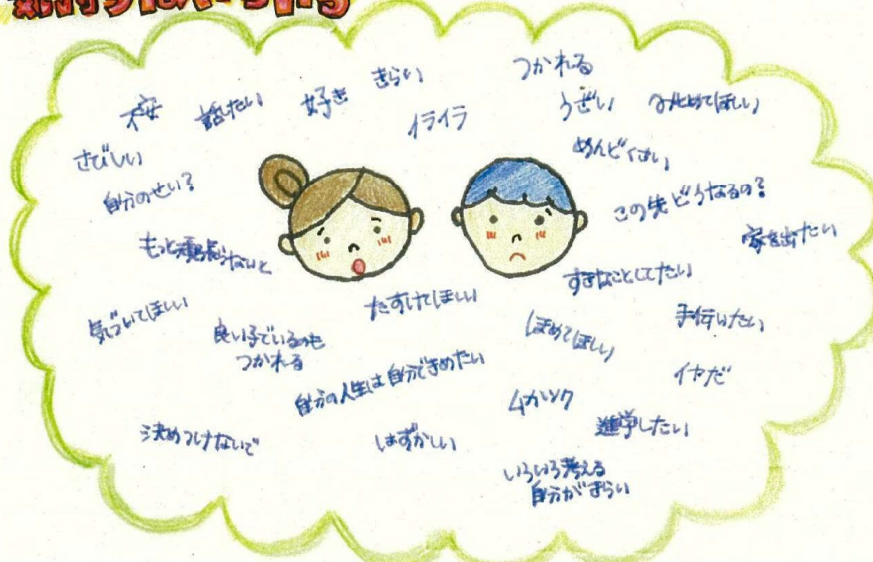 気持ちはいろいろ
不安
話したい
好き
きらい
つかれる
イライラ
うざい
みとめてほしい
さびしい
めんどくさい
自分のせい？
この先どうなるの？
もっと頑張らないと
家を出たい
すきなことしてたい
たすけてほしい
気づいてほしい
良い子でいるのも
つかれる
ほめてほしい
手伝いたい
自分の人生は自分できめたい
イヤだ
ムカツク
決めつけないで
はずかしい
進学したい
いろいろ考える
自分がきらい